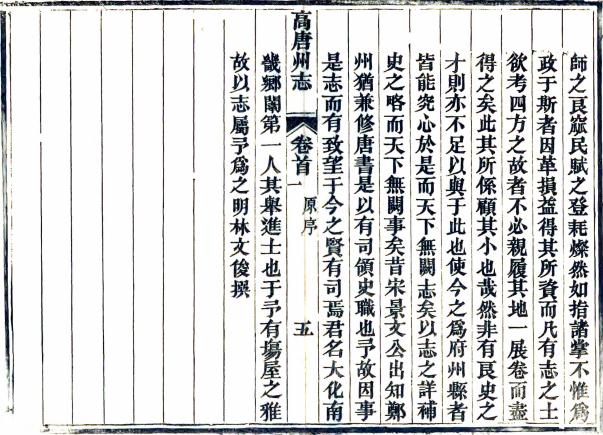 師之良窳民賦之登耗燦然如指諸掌不惟爲
政于斯者因革損益得其所資而凡有志之士
欲考四方之故者不必親履其地一展卷而盡
得之矣此其所係顧其小也哉然非有良史之
才則亦不足以與于此也使今之爲府州縣者
皆能究心於是而天下無闕志矣以志之詳補
史之略而天下無闕事矣昔宋景文公出知鄭
州猶兼修唐書是以有司領史職也予故因事
是志而有致望于今之賢有司焉君名大化南
畿鄉闈第一人其舉進士也于予有場屋之雅
故以志屬予爲之明林文俊撰
高唐州志 卷首一 原序 五